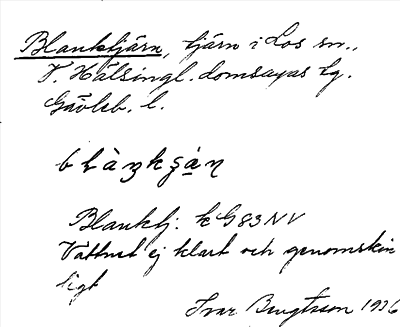 Blanktjärn, tjärn i Los sn.,
V. Hälsingl. domsagas tg.
Gävleb. l.
blànkʂạ̀n
Blanktj: k G83NV
Vattnet ej klart och genomskin
ligt
Ivar Bengtsson 1936